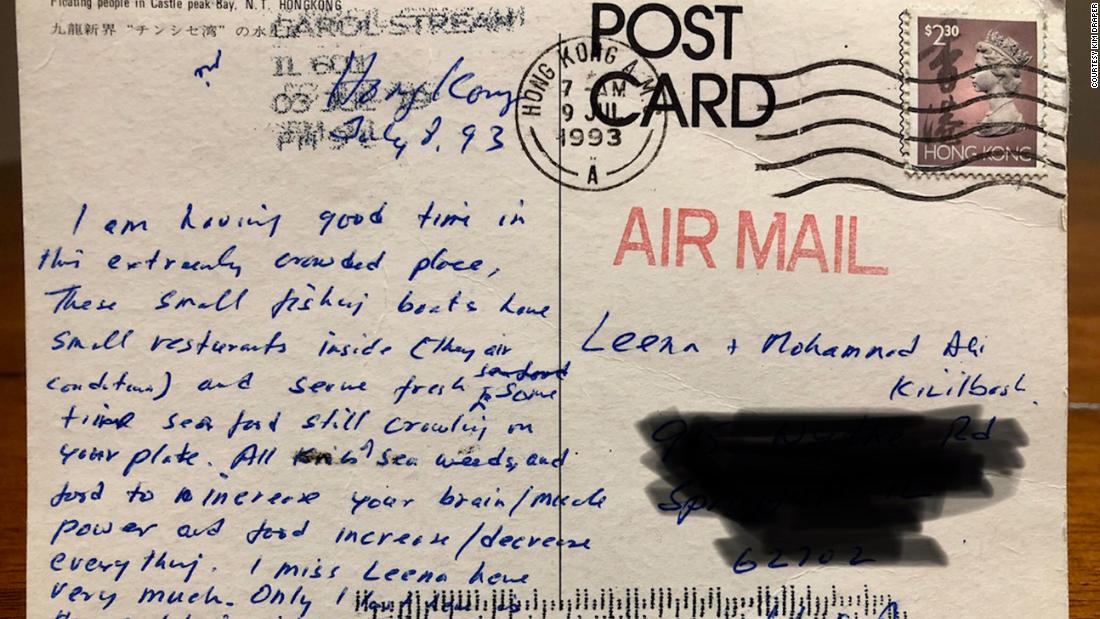 Floating people in Castle peak Bay, N. T. HONGKONG
九龍新界 "チンシセ湾" の水
CAROL STREAM
IL 601
03
PM
Hong Kong
July 8, 93
POST
CARD
HONG KONG
7 AM
9 JUL
1993
A
$2.30
香港
HONG KONG
AIR MAIL
I am having good time in
this extreemly crowded place,
These small fishing boats have
small resturants inside (they air
condition) and serve fresh seafood
some
time sea food still crawling on
your plate. All sea weeds, and
food to increase your brain/muscle
power and food increase/decrease
every thing. I miss Leena here
very much. Only I
Leena + Mohammed Ali
Kizilbash
Rd
62702
COURTESY KIM DRAPER